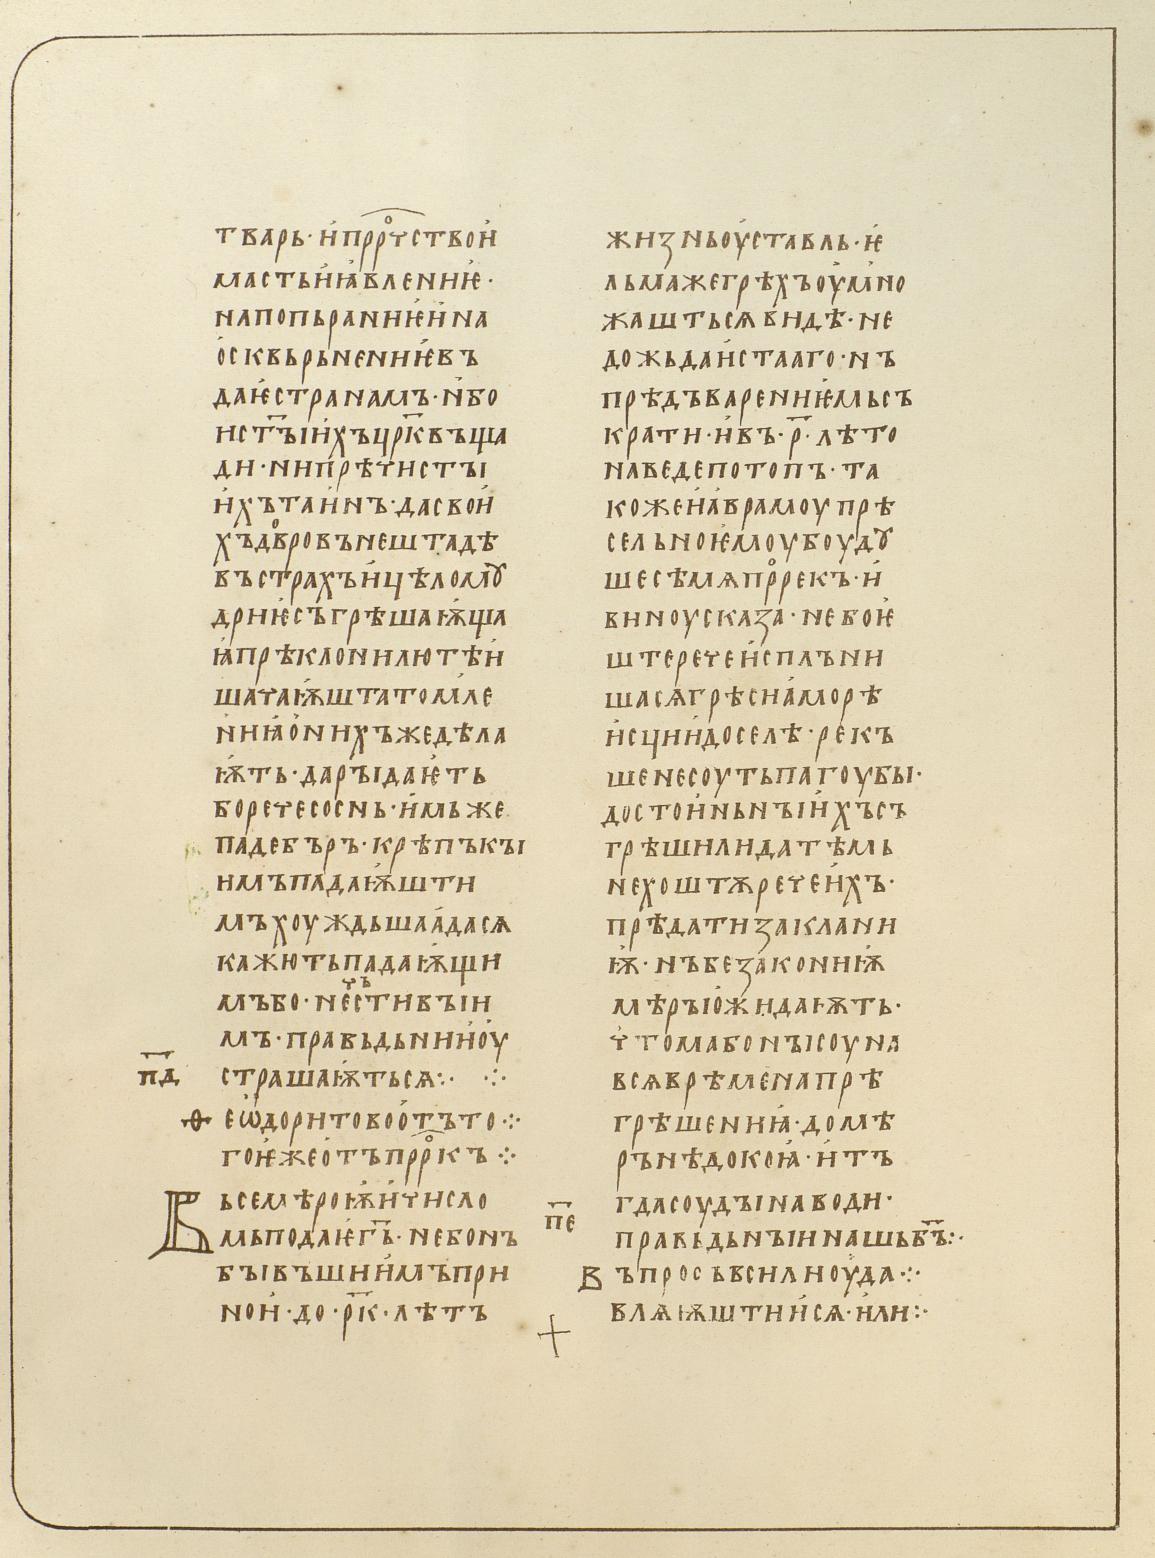 тварь· и҆прⷪ҇рчствои҆
мастьи҆ꙗ҆влениѥ·
напопьраниѥ҆и҆на
о҆сквьрьнениѥ҆въ
даѥ҆странамъ·и҆бо
ист҃ыи҆хъцр҃квъща
ди·нипрѣчисты
и҆хътаи҆нъ·дасвои҆
хъдⷪ҇вровънештадѣ
въстрахъи҆цѣломꙋ
дриѥ҆съгрѣшаѭ҆ща
ꙗ҆прѣклонилютѣи҆
шачаѭ҆штатомле
ниꙗ҆о҆нихъжедѣла
ѭ҆ть·дарꙑдаѥ҆ть
боречесоснь·и҆мьже
падебъръ·крѣпъкꙑ
имъпадаѭ҆шти
мъхоуждьшаа҆дасѧ
кажютьпадаѭ҆щи
мъбо·нечъстивꙑи
мъ·правьдьнии҆оу҆
п҃д
страшаѭ҆тьсѧ:·  ·:·
ѳ еѡ҆доритовоо҆тъто·:·
гоѥ҆жео҆тъпрⷪ҇ркъ·:·
Вьсемѣроѭ҆и҆число
мьподаѥ҆гь҃·небонъ
бꙑвъшии҆мъпри
нои҆·до·р҃к·лѣтъ
жизньоу҆ставль·ѥ҆
льмажегрѣхъоу҆мно
жаштьсѧвидѣ·не
дожьдаи҆стааго·нъ
прѣдъварениѥ҆мьсъ
крати·и҆въ·р҃·лѣто
наведепотопъ·та
кожеи҆а҆врамоупрѣ
сельноѥ҆моубоудꙋ
шесѣмѧпрⷪ҇рекъ·и҆
виноусказа·небоѥ҆
штеречеи҆сплъни
шасѧгрѣсиа҆морѣ
и҆сции҆доселѣ·рекъ
шенесоутьпагоубꙑ·
достои҆ньнꙑи҆хъсъ
грѣшилидатѣмь
нехоштѫречеи҆хъ·
прѣдатизаклани
ѭ҆·нъбезакониѭ҆
мѣрꙑо҆жидаѭть·
чтомабонꙑсоуна
всѧврѣменапрѣ
грѣшениꙗ҆·домѣ
рънѣдокоꙗ҆·и҆тъ
гдасоудꙑнаводи·
п҃е
правьдьнꙑинашьб҃ъ:·
Въпросьвсилноу҆да·:·
влѧѭ҆штии҆сѧ·и҆ли:·